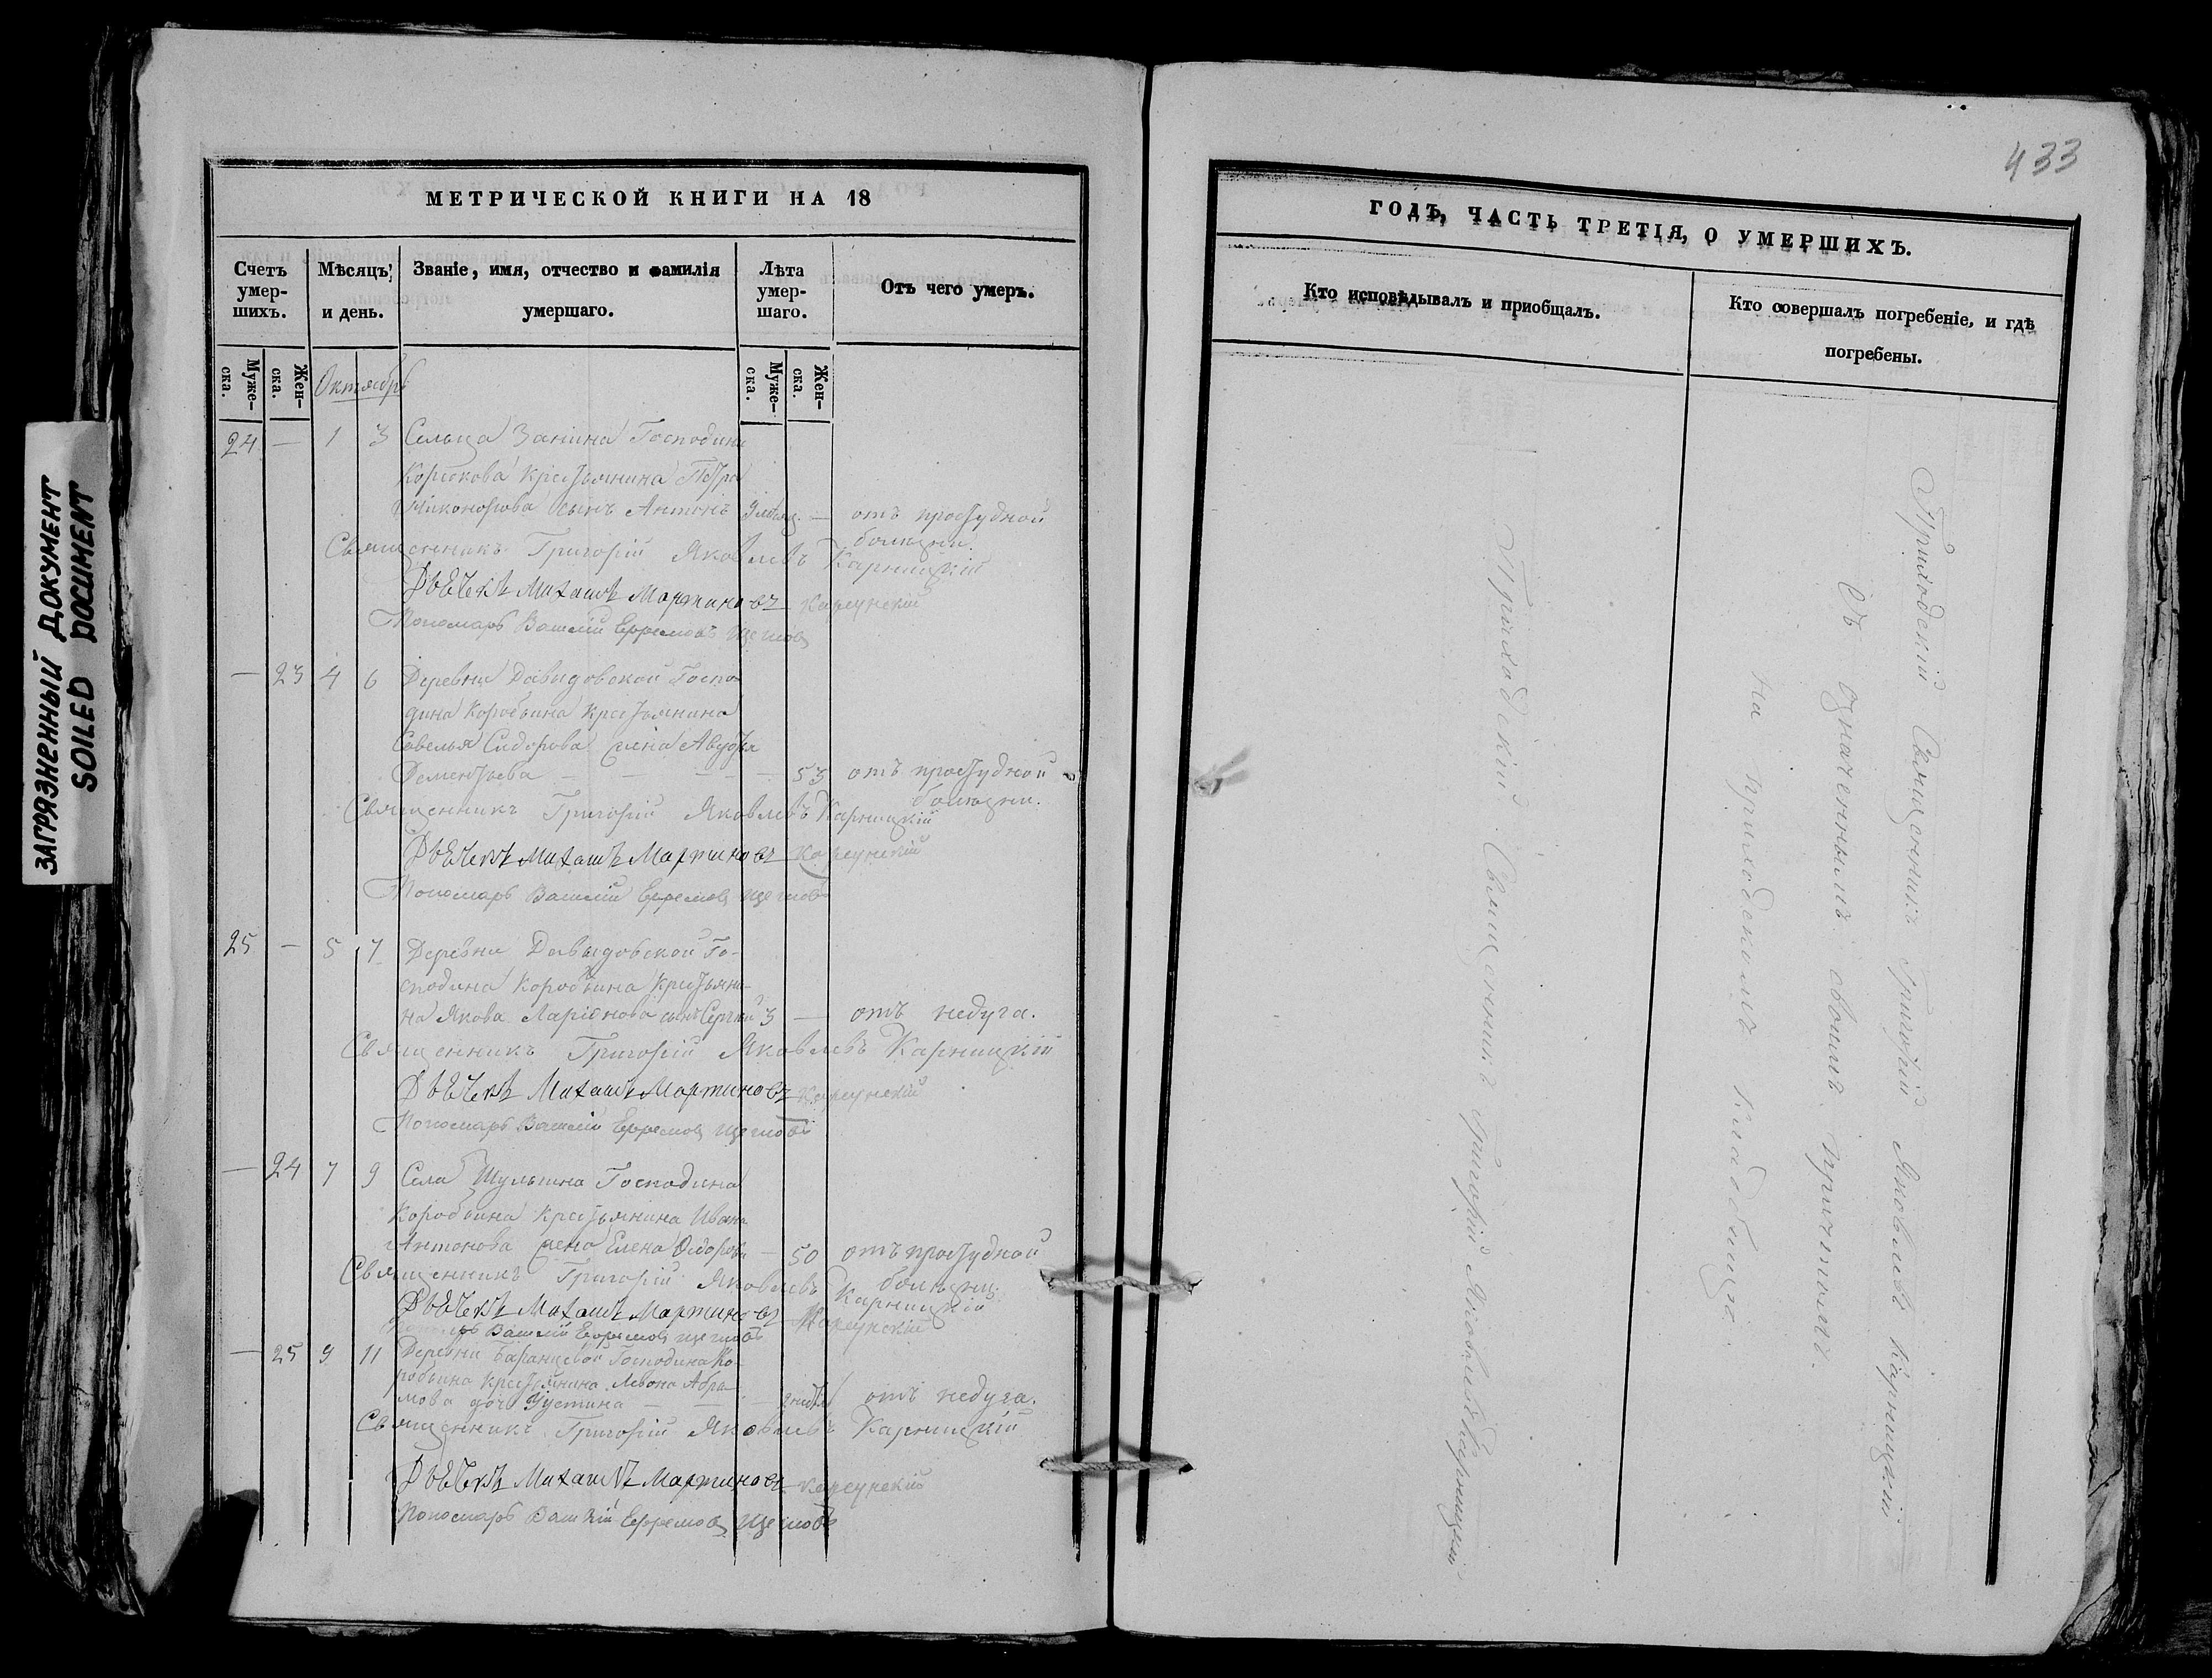 ЗАГРЯЗНЕННЫЙ ДОКУМЕНТ
SOILED DOCUMENT
МЕТРИЧЕСКОЙ КНИГИ НА 18
Счетъ умер-шихъ.
Мѣсяцъ и день.
Званіе, имя, отчество и фамилія умершаго.
Лѣта умер-шаго.
Отъ чего умеръ.
Муже-ска.
Жен-ска.
Муже-ска.
Жен-ска.
Октябрь
24 — 1 3 Сельца Занина Господина
крестьянина Петра
Никонорова сынъ Антонъ — отъ простудной
болѣзни.
Священникъ Григорій Яковлевъ Карницкій
Дьячекъ Михаилъ Мартиновъ Карсунскій
Пономарь Василій Ефремовъ Щегловъ
— 23 4 6 Деревни Давыдовской Госпо-
дина Коробьина Крестьянина
Савелья Сидорова жена Авдотья
Дементьева — — — — 53 отъ простудной
болѣзни.
Священникъ Григорій Яковлевъ Карницкій
Дьячекъ Михаилъ Мартиновъ Карсунскій
Пономарь Василій Ефремовъ Щегловъ
25 — 5 7 Деревни Давыдовской Го-
сподина Коробьина Крестьяни-
на Якова Ларіонова сынъ Сергѣй 3 — отъ недуга.
Священникъ Григорій Яковлевъ Карницкій
Дьячекъ Михаилъ Мартиновъ Карсунскій
Пономарь Василій Ефремовъ Щегловъ
— 24 7 9 Села Шульгина Господина
Коробьина крестьянина Ивана
Антонова жена Елена — 50 отъ простудной
болѣзни.
Священникъ Григорій Яковлевъ Карницкій
Дьячекъ Михаилъ Мартиновъ Карсунскій
Пономарь Василій Ефремовъ Щегловъ
— 25 9 11 Деревни Баранцевой Господина Ко-
робьина крестьянина Левона Абра-
мова дочь Устина — — — отъ недуга.
Священникъ Григорій Яковлевъ Карницкій
Дьячекъ Михаилъ Мартиновъ Карсунскій
Пономарь Василій Ефремовъ Щегловъ
433
ГОДЪ, ЧАСТЬ ТРЕТІЯ, О УМЕРШИХЪ.
Кто исповѣдывалъ и приобщалъ.
Кто совершалъ погребеніе, и гдѣ
погребены.
Приходскій Священникъ Григорій Яковлевъ Карницкій
Приходскій Священникъ Григорій Яковлевъ Карницкій
Съ означеннымъ своимъ причтомъ.
На приходскомъ кладбищѣ.